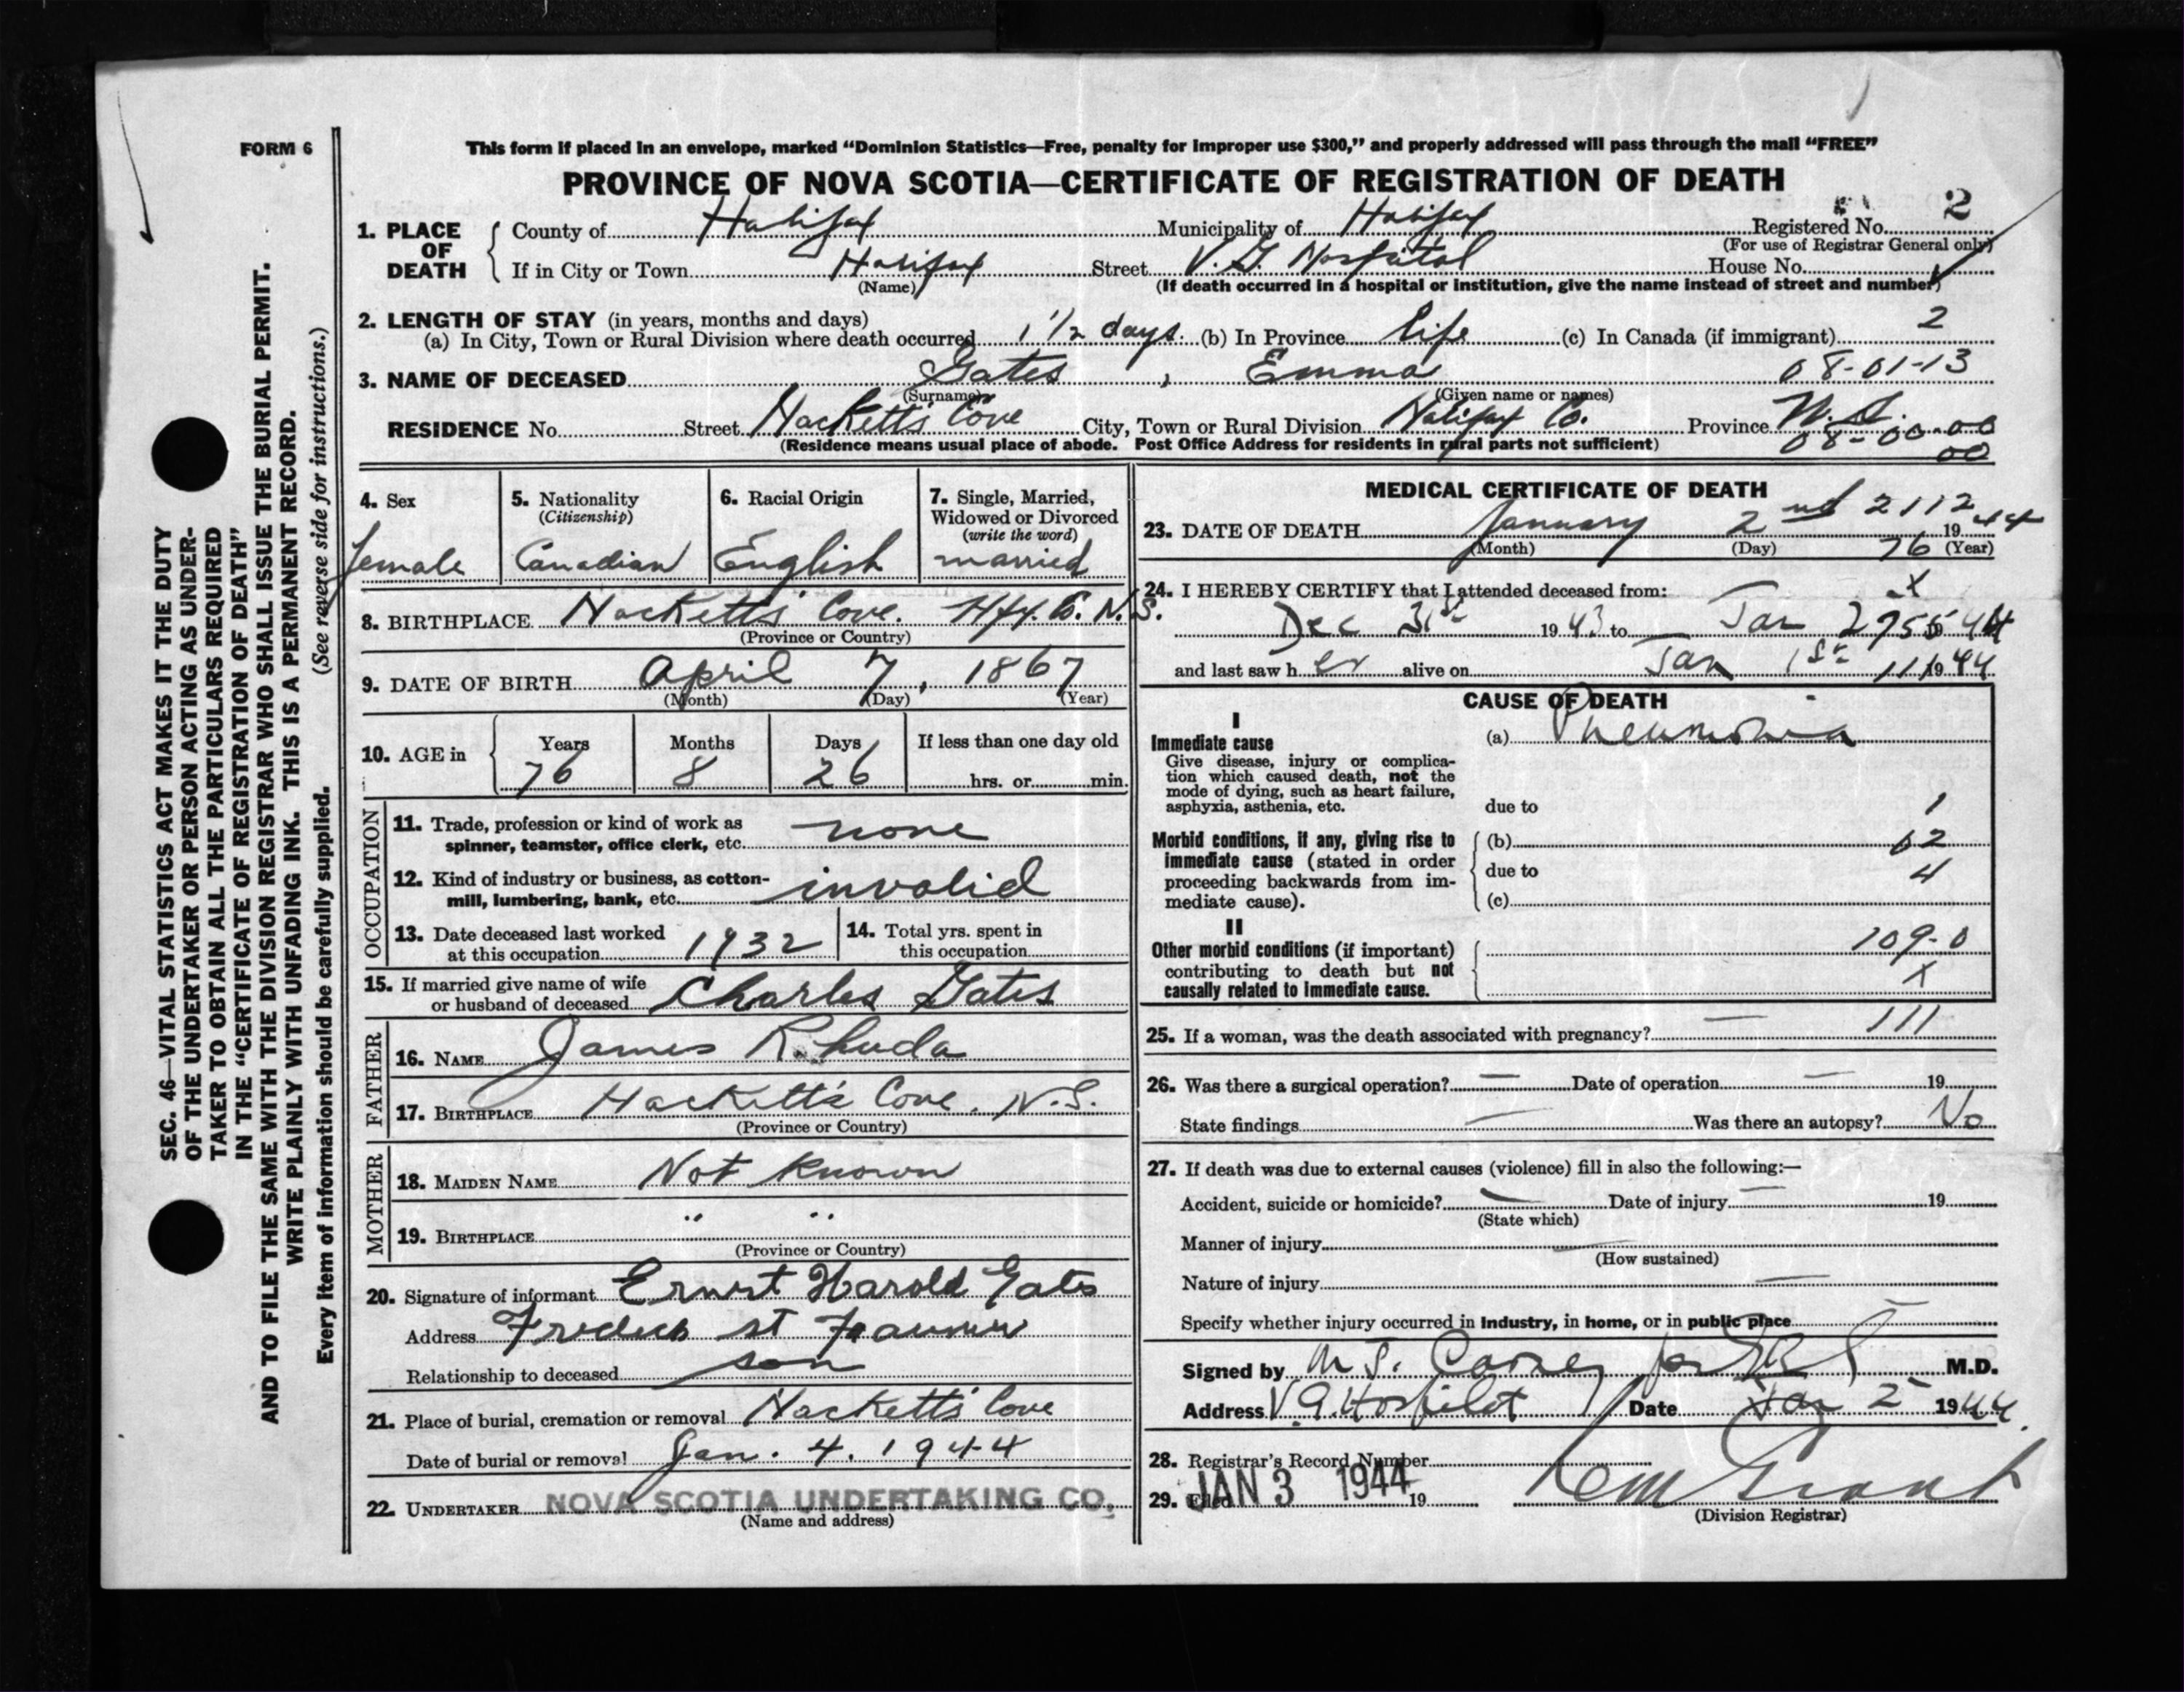 FORM 6
This form if placed in an envelope, marked “Dominion Statistics—Free, penalty for improper use $300,” and properly addressed will pass through the mail “FREE”
PROVINCE OF NOVA SCOTIA—CERTIFICATE OF REGISTRATION OF DEATH
1. PLACE OF DEATH
County of Halifax Municipality of Halifax Registered No. 2
(For use of Registrar General only)
If in City or Town Halifax Street V.G. Hospital House No.
(Name) (If death occurred in a hospital or institution, give the name instead of street and number)
2. LENGTH OF STAY (in years, months and days)
(a) In City, Town or Rural Division where death occurred 1 1/2 days. (b) In Province life (c) In Canada (if immigrant) 2
3. NAME OF DECEASED Gates, Emma 08-01-13
(Surname) (Given name or names)
RESIDENCE No. Street Hacketts Cove City, Town or Rural Division Halifax Co. Province N.S.
08-00-00
00
(Residence means usual place of abode. Post Office Address for residents in rural parts not sufficient)
4. Sex
female
5. Nationality
(Citizenship)
Canadian
6. Racial Origin
English
7. Single, Married,
Widowed or Divorced
(write the word)
married
8. BIRTHPLACE Hacketts Cove. Hfx. Co. N.S.
(Province or Country)
9. DATE OF BIRTH April 7, 1867
(Month) (Day) (Year)
10. AGE in
Years Months Days If less than one day old
76 8 26 hrs. or min.
OCCUPATION
11. Trade, profession or kind of work as
spinner, teamster, office clerk, etc. none
12. Kind of industry or business, as cotton-
mill, lumbering, bank, etc. invalid
13. Date deceased last worked
at this occupation 1932
14. Total yrs. spent in
this occupation
15. If married give name of wife
or husband of deceased Charles Gates
FATHER
16. NAME James Rhuda
17. BIRTHPLACE Hackett's Cove. N.S.
(Province or Country)
MOTHER
18. MAIDEN NAME Not Known
19. BIRTHPLACE " "
(Province or Country)
20. Signature of informant Ernest Harold Gates
Address st
Relationship to deceased son
21. Place of burial, cremation or removal Hacketts Cove
Date of burial or removal Jan. 4. 1944
22. UNDERTAKER NOVA SCOTIA UNDERTAKING CO.
(Name and address)
MEDICAL CERTIFICATE OF DEATH
23. DATE OF DEATH January 2nd 2112 1944
(Month) (Day) 76 (Year)
24. I HEREBY CERTIFY that I attended deceased from: X
Dec 31st 1943 to Jan 44
and last saw her alive on Jan 1st 111 1944
CAUSE OF DEATH
I
Immediate cause
Give disease, injury or complica-
tion which caused death, not the
mode of dying, such as heart failure,
asphyxia, asthenia, etc.
(a) Pneumonia
due to 1
Morbid conditions, if any, giving rise to
immediate cause (stated in order
proceeding backwards from im-
mediate cause).
(b) 62
due to 4
(c)
II
Other morbid conditions (if important)
contributing to death but not
causally related to immediate cause.
109-0
X
25. If a woman, was the death associated with pregnancy? — 111
26. Was there a surgical operation? — Date of operation — 19
State findings — Was there an autopsy? No
27. If death was due to external causes (violence) fill in also the following:—
Accident, suicide or homicide? — Date of injury — 19
(State which)
Manner of injury —
(How sustained)
Nature of injury —
Specify whether injury occurred in Industry, in home, or in public place —
Signed by M.D.
Address V.G. Hospital Date Jan 2 1944.
28. Registrar's Record Number
29. Filed JAN 3 1944 19
(Division Registrar)
SEC. 46—VITAL STATISTICS ACT MAKES IT THE DUTY
OF THE UNDERTAKER OR PERSON ACTING AS UNDER-
TAKER TO OBTAIN ALL THE PARTICULARS REQUIRED
IN THE “CERTIFICATE OF REGISTRATION OF DEATH”
AND TO FILE THE SAME WITH THE DIVISION REGISTRAR WHO SHALL ISSUE THE BURIAL PERMIT.
WRITE PLAINLY WITH UNFADING INK. THIS IS A PERMANENT RECORD.
Every item of information should be carefully supplied. (See reverse side for instructions.)